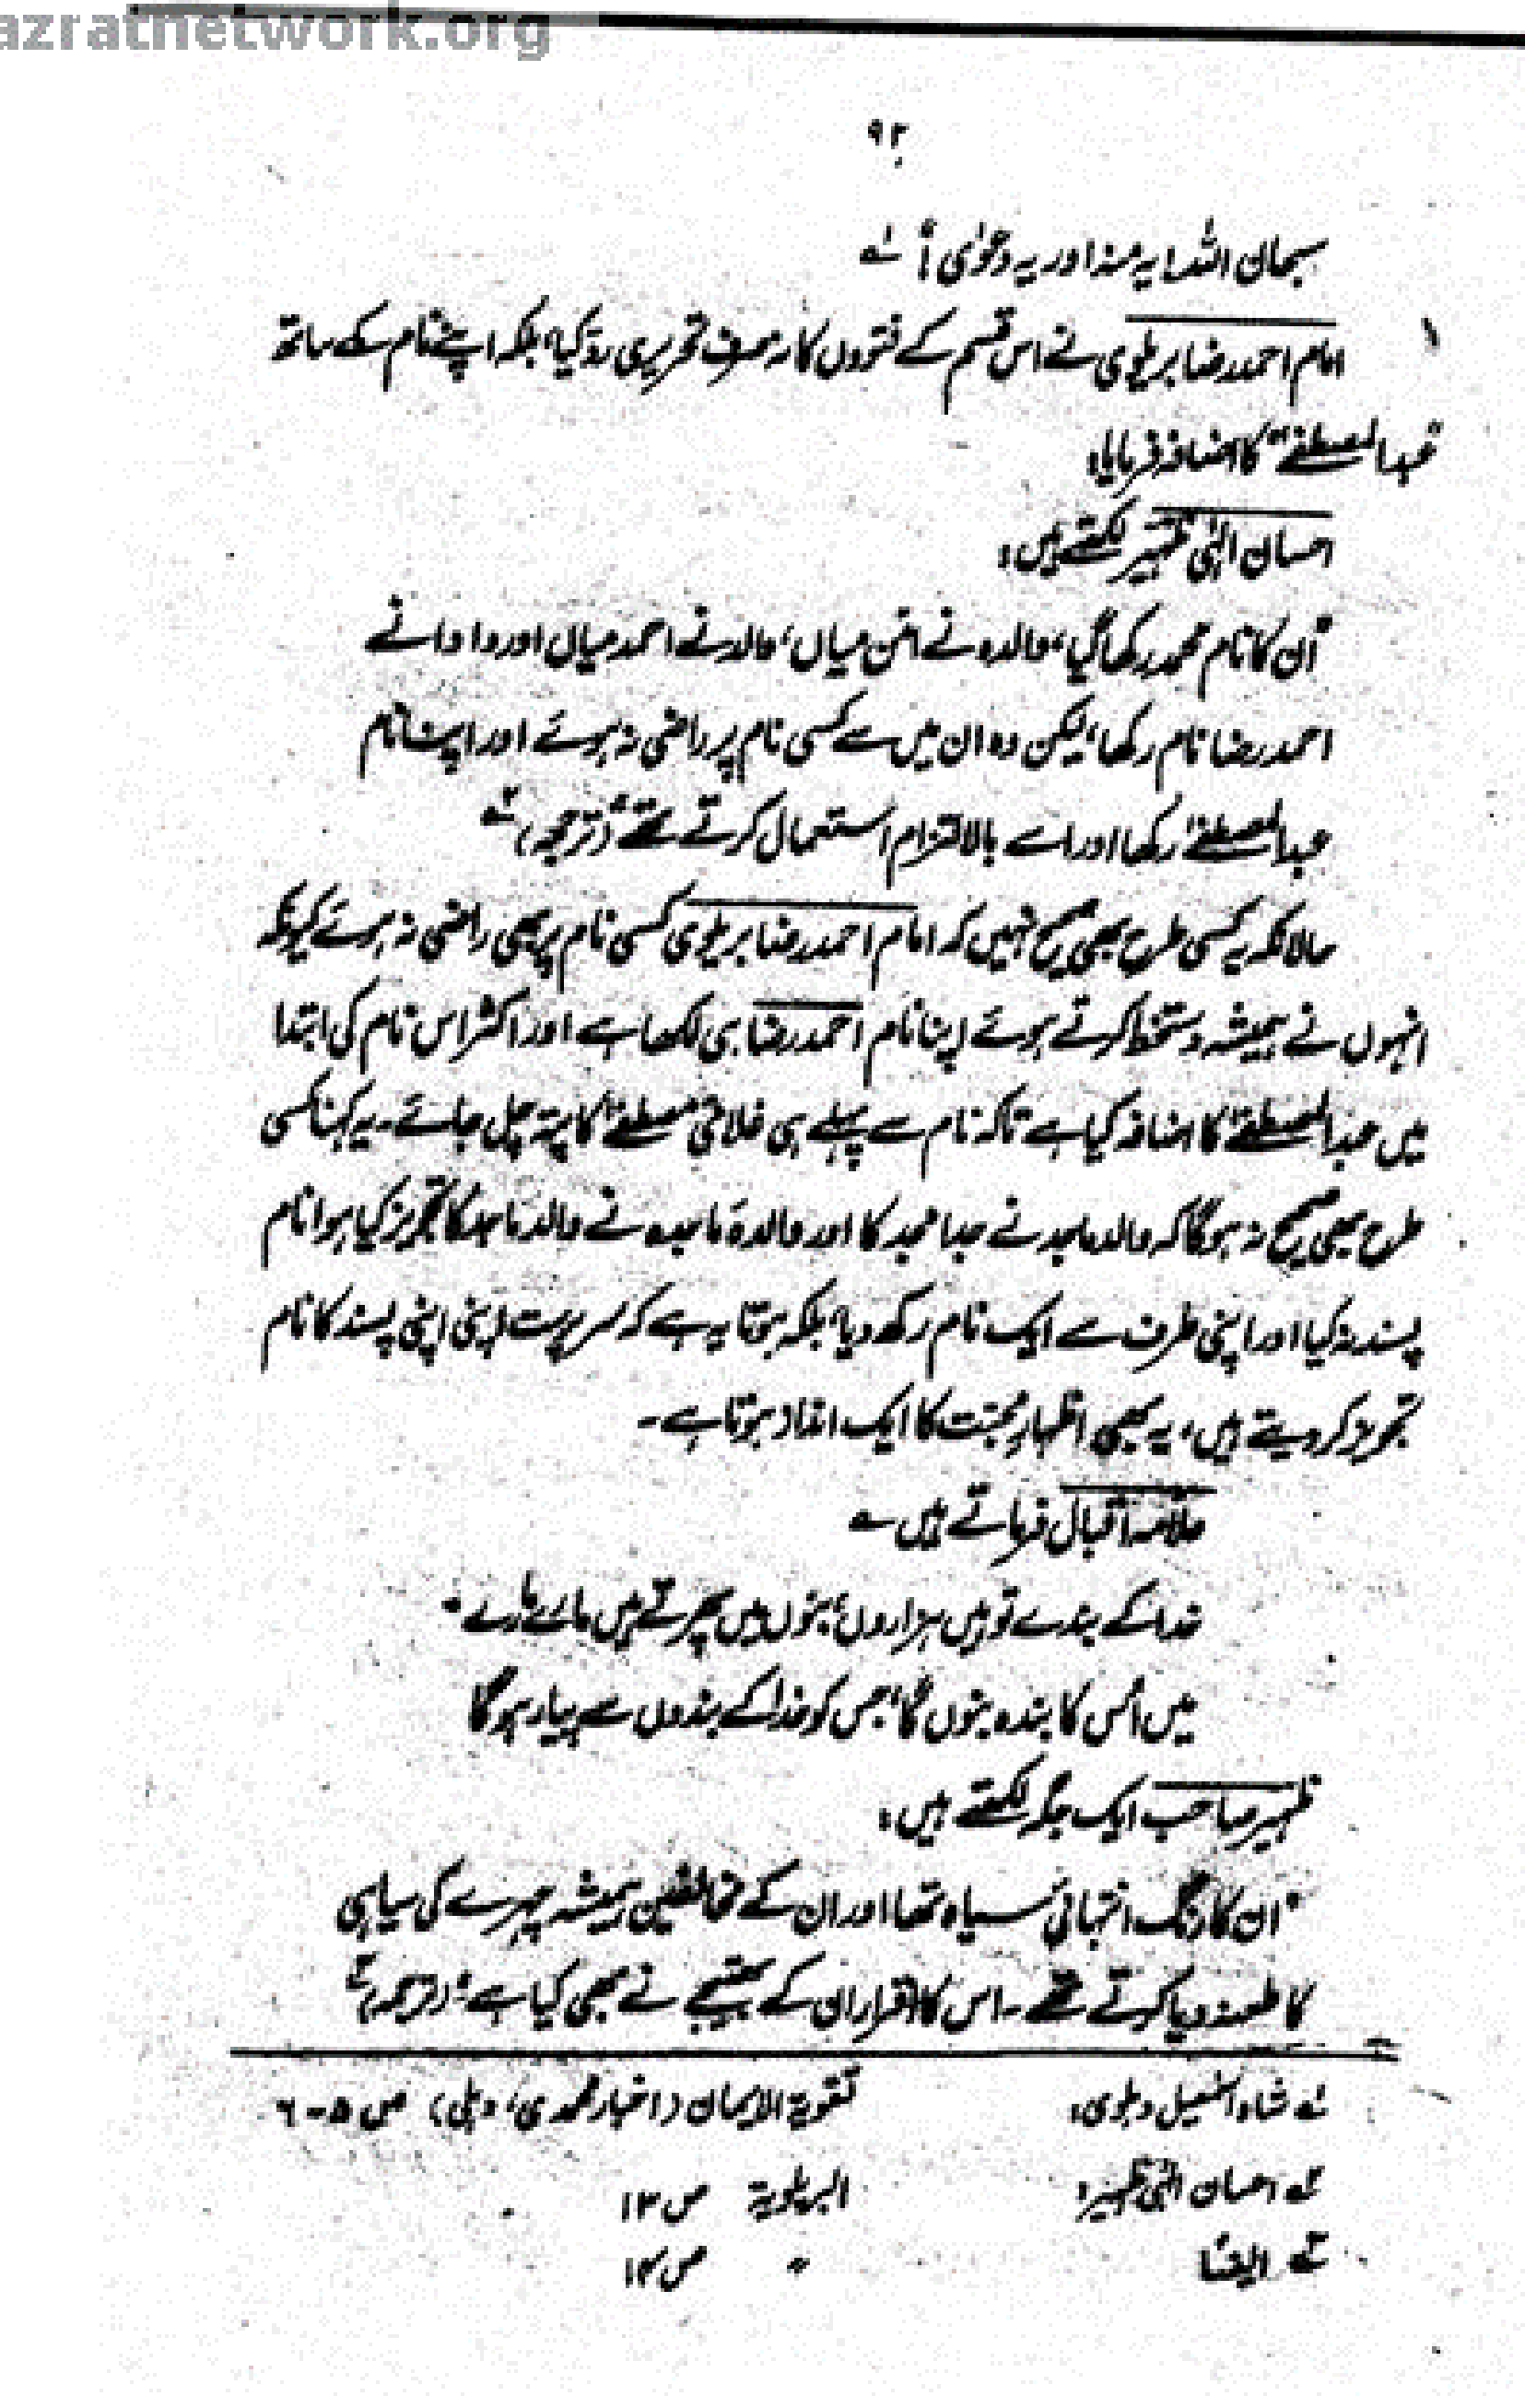 azratnetwork.org
۹۲
سبحان اللہ! یہ منہ اور یہ دعوٰی! ؎۱
امام احمد رضا بریلوی نے اس قسم کے فتووں کا نہ صرف تحریری رد کیا، بلکہ اپنے نام کے ساتھ
عبد المصطفےٰ" کا اضافہ فرمایا:
احسان الٰہی ظہیر لکھتے ہیں:
"ان کا نام محمد رکھا گیا، والدہ نے امّن میاں، والد نے احمد میاں اور دادا نے
احمد رضا نام رکھا، لیکن وہ ان میں سے کسی نام پر راضی نہ ہوئے اور اپنا نام
عبد المصطفےٰ رکھا اور اسے بالالتزام استعمال کرتے تھے" (ترجمہ) ؎۲
حالانکہ یہ کسی طرح بھی صحیح نہیں کہ امام احمد رضا بریلوی کسی نام پر بھی راضی نہ ہوئے کیونکہ
انہوں نے ہمیشہ دستخط کرتے ہوئے اپنا نام احمد رضا ہی لکھا ہے اور اکثر اس نام کی ابتدا
میں عبد المصطفےٰ کا اضافہ کیا ہے تاکہ نام سے پہلے ہی غلامیٔ مصطفےٰ کا پتہ چل جائے۔ یہ کہنا کسی
طرح بھی صحیح نہ ہوگا کہ والد ماجد نے جد امجد کا اور والدۂ ماجدہ نے والد ماجد کا تجویز کیا ہوا نام
پسند نہ کیا اور اپنی طرف سے ایک نام رکھ دیا، بلکہ ہوتا یہ ہے کہ سرپرست اپنی اپنی پسند کا نام
تجویز کر دیتے ہیں، یہ بھی اظہارِ محبت کا ایک انداز ہوتا ہے۔
علامہ اقبال فرماتے ہیں ؎
خدا کے بندے تو ہیں ہزاروں، بنوں میں پھرتے ہیں مارے مارے
میں اُس کا بندہ بنوں گا، جس کو خدا کے بندوں سے پیار ہوگا
ظہیر صاحب ایک جگہ لکھتے ہیں:
"ان کا رنگ انتہائی سیاہ تھا اور ان کے مخالفین ہمیشہ چہرے کی سیاہی
کا طعنہ دیا کرتے تھے۔ اس کا اقرار ان کے بھتیجے نے بھی کیا ہے" (ترجمہ) ؎۳
؎۱ شاہ اسمٰعیل دہلوی: تقویۃ الایمان (اخبار محمدی، دہلی) ص ۵-۶
؎۲ احسان الٰہی ظہیر: البریلویۃ ص ۱۳
؎۳ ایضاً " ص ۱۴